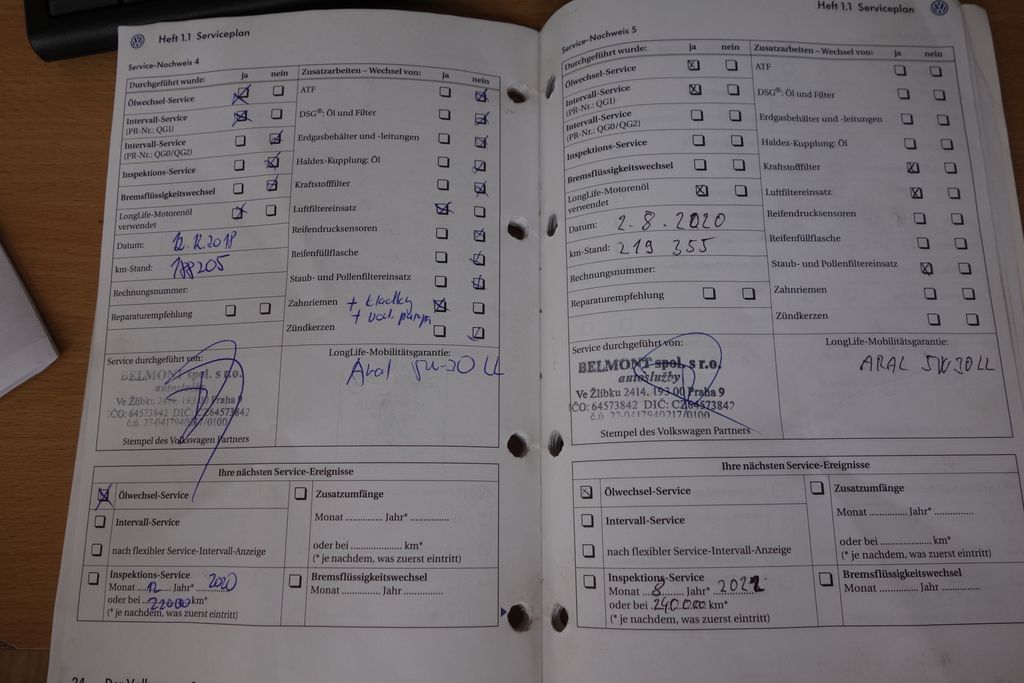 Heft 1.1 Serviceplan
Service-Nachweis 4
Durchgeführt wurde: ja nein
Ölwechsel-Service
Intervall-Service
(PR-Nr.: QG1)
Intervall-Service
(PR-Nr.: QG0/QG2)
Inspektions-Service
Bremsflüssigkeitswechsel
LongLife-Motorenöl
verwendet
Datum: 12.12.2018
km-Stand: 188205
Rechnungsnummer:
Reparaturempfehlung
Zusatzarbeiten – Wechsel von: ja nein
ATF
DSG®: Öl und Filter
Erdgasbehälter und -leitungen
Haldex-Kupplung: Öl
Kraftstofffilter
Luftfiltereinsatz
Reifendrucksensoren
Reifenfüllflasche
Staub- und Pollenfiltereinsatz
Zahnriemen + kladky
+ vod. pumpa
Zündkerzen
Service durchgeführt von:
BELMONT spol. s r.o.
autoslužby
Ve Žlíbku 2414, 193 00 Praha 9
IČO: 64573842 DIČ: CZ64573842
č.ú. 27-0417940217/0100
Stempel des Volkswagen Partners
LongLife-Mobilitätsgarantie:
Aral 5W-30 LL
Ihre nächsten Service-Ereignisse
Ölwechsel-Service
Intervall-Service
nach flexibler Service-Intervall-Anzeige
Inspektions-Service
Monat 12 Jahr* 2020
oder bei 220000 km*
(* je nachdem, was zuerst eintritt)
Zusatzumfänge
Monat ............... Jahr* ...............
oder bei .................... km*
(* je nachdem, was zuerst eintritt)
Bremsflüssigkeitswechsel
Monat ............ Jahr ............
Heft 1.1 Serviceplan
Service-Nachweis 5
Durchgeführt wurde: ja nein
Ölwechsel-Service
Intervall-Service
(PR-Nr.: QG1)
Intervall-Service
(PR-Nr.: QG0/QG2)
Inspektions-Service
Bremsflüssigkeitswechsel
LongLife-Motorenöl
verwendet
Datum: 2.8.2020
km-Stand: 219 355
Rechnungsnummer:
Reparaturempfehlung
Zusatzarbeiten – Wechsel von: ja nein
ATF
DSG®: Öl und Filter
Erdgasbehälter und -leitungen
Haldex-Kupplung: Öl
Kraftstofffilter
Luftfiltereinsatz
Reifendrucksensoren
Reifenfüllflasche
Staub- und Pollenfiltereinsatz
Zahnriemen
Zündkerzen
Service durchgeführt von:
BELMONT spol. s r.o.
autoslužby
Ve Žlíbku 2414, 193 00 Praha 9
IČO: 64573842 DIČ: CZ64573842
č.ú. 27-0417940217/0100
Stempel des Volkswagen Partners
LongLife-Mobilitätsgarantie:
ARAL 5W30LL
Ihre nächsten Service-Ereignisse
Ölwechsel-Service
Intervall-Service
nach flexibler Service-Intervall-Anzeige
Inspektions-Service
Monat 8 Jahr* 2022
oder bei 240.000 km*
(* je nachdem, was zuerst eintritt)
Zusatzumfänge
Monat ............... Jahr* ...............
oder bei .................... km*
(* je nachdem, was zuerst eintritt)
Bremsflüssigkeitswechsel
Monat ............ Jahr ............